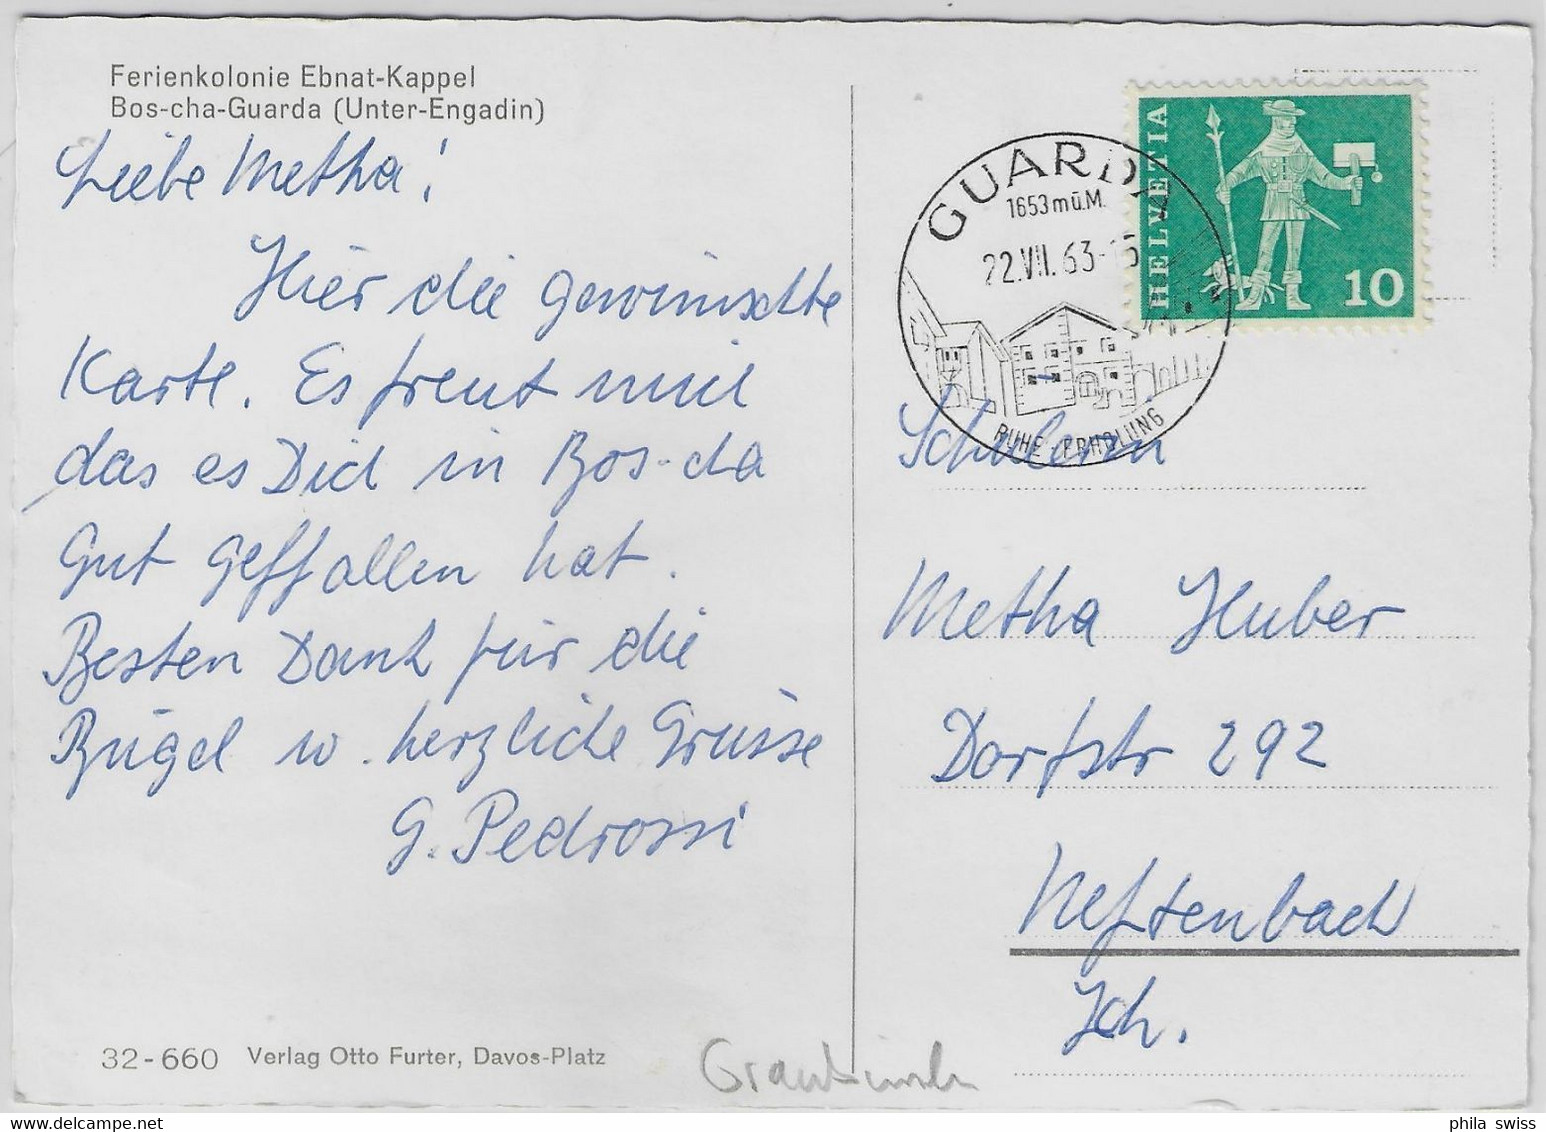 Ferienkolonie Ebnat-Kappel
Bos-cha-Guarda (Unter-Engadin)
Liebe Metha!
Hier die gewünschte
Karte. Es freut mich
das es Dich in Bos-cha
Gut geffallen hat.
Besten Dank für die
Bügel u. herzliche Grüsse
G. Pedrossi
32-660 Verlag Otto Furter, Davos-Platz
GUARDA
1653 m ü. M.
22.VII.63-15
RUHE - ERHOLUNG
HELVETIA
10
Schülerin
Metha Huber
Dorfstr 292
Neftenbach
Zch.
Graubünden
phila swiss